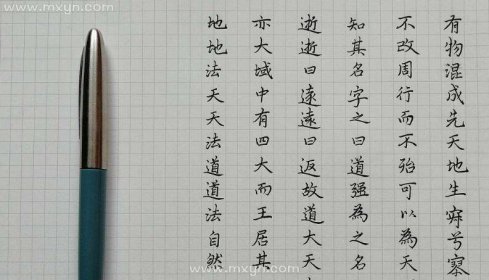 www.mxyn.com
有物混成先天地生寂兮寥
不改周行而不殆可以為天
知其名字之曰道强為之名
逝逝曰遠遠曰返故道大天
亦大域中有四大而王居其
地地法天天法道道法自然
www.mxyn.com